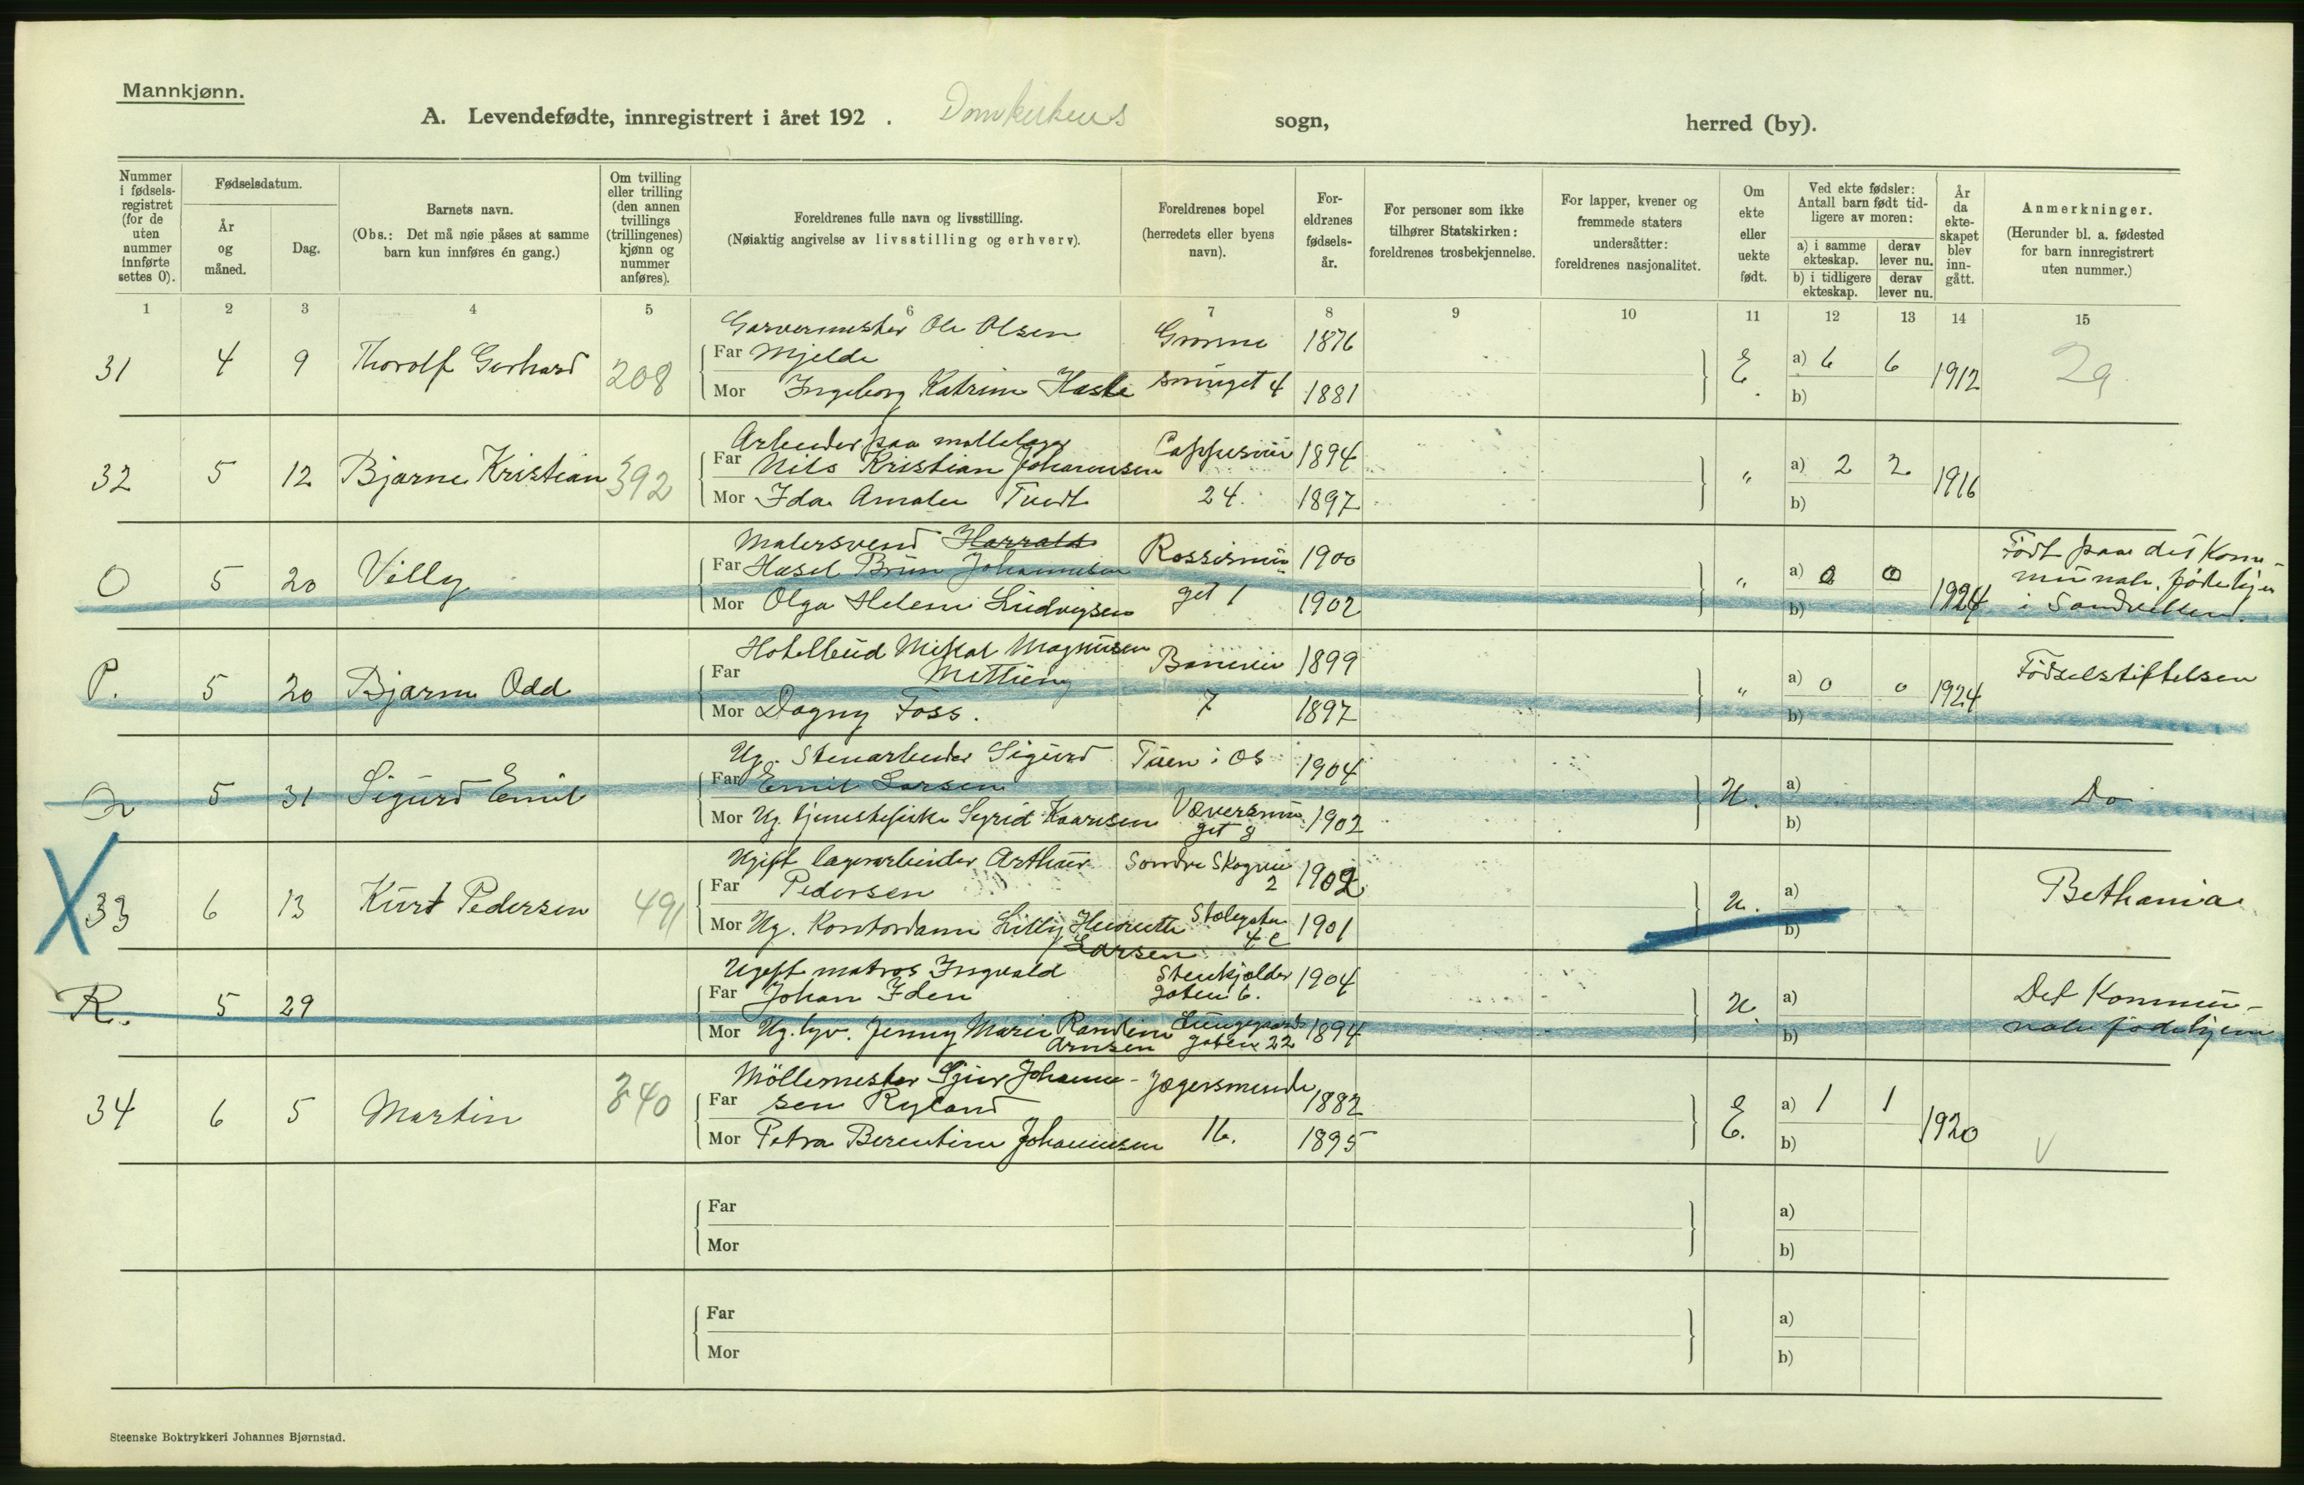 Mannkjønn.
A. Levendefødte, innregistrert i året 192 . Domkirkens sogn, herred (by).
Nummer i fødsels-registret (for de uten nummer innførte settes 0).
Fødselsdatum.
År og måned.
Dag.
Barnets navn.
(Obs.: Det må nøie påses at samme barn kun innføres én gang.)
Om tvilling eller trilling (den annen tvillings (trillingenes) kjønn og nummer anføres).
Foreldrenes fulle navn og livsstilling.
(Nøiaktig angivelse av livsstilling og erhverv).
Foreldrenes bopel (herredets eller byens navn).
For-eldrenes fødsels-år.
For personer som ikke tilhører Statskirken: foreldrenes trosbekjennelse.
For lapper, kvener og fremmede staters undersåtter: foreldrenes nasjonalitet.
Om ekte eller uekte født.
Ved ekte fødsler: Antall barn født tid-ligere av moren:
a) i samme ekteskap.
derav lever nu.
b) i tidligere ekteskap.
derav lever nu.
År da ekte-skapet blev inn-gått.
Anmerkninger.
(Herunder bl. a. fødested for barn innregistrert uten nummer.)
1 2 3 4 5 6 7 8 9 10 11 12 13 14 15
Garvermester Ole Olsen
31 4 9 Thorolf Gerhard 208 Far Mjelde Grønne 1876 E. a) 6 6 1912
Mor Ingeborg Katrine smuget 4 1881 b)
Arbeider paa
32 5 12 Bjarne Kristian 392 Far Nils Kristian Johannesen 1894 " a) 2 2 1916
Mor Ida Tvedt 24. 1897 b)
Malersvend Harrald
O 5 20 Villy Far Johannesen 1900 " a) 0 0 1924 Født paa det Kom-
munale fødehjem
Mor Olga Helene Ludvigsen get 1 1902 b) i Sandviken.
Hotelbud Magnusen
P. 5 20 Bjarne Odd Far 1899 " a) 0 0 1924 Fødselstiftelsen
Mor Dagny Foss. 7 1897 b)
Ug. Stenarbeider Sigurd
5 31 Sigurd Emil Far Emil Larsen i Os 1904 U. a) Do
Mor Ug. Sigrid Væversmu-
get 8 1902 b)
Ugift lagerarbeider Arthur Søndre Skogvei
X 33 6 13 Kurt Pedersen 491 Far Pedersen 2 1902 U. a) Bethania
Mor Ug. Kontordame Lilly Henriette Larsen 4 c 1901 b)
Ugift matros Ingvald
R. 5 29 Far Johan Iden gaten 6. 1904 U. a) Det Kommu-
nale fødehjem
Mor Ug. Jenny Marie Arnsen gaten 22 1894 b)
Möllemester Sjur Johanne-
34 6 5 Martin 340 Far sen Ryland 1882 E. a) 1 1 1920
Mor Petra Berentine Johannesen 16. 1895 b)
Far a)
Mor b)
Far a)
Mor b)
Steenske Boktrykkeri Johannes Bjørnstad.